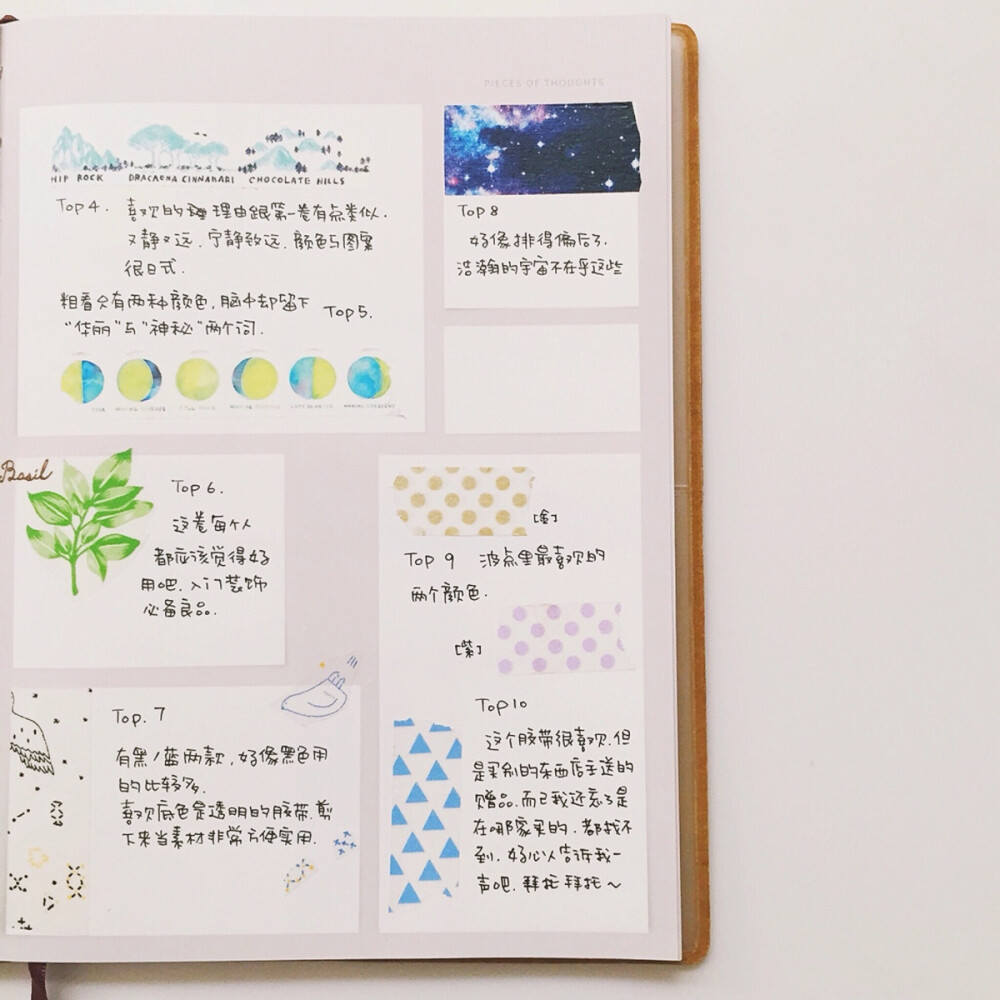 PIECES OF THOUGHTS
HIP ROCK DRACAENA CINNABARI CHOCOLATE HILLS
Top 4. 喜欢的理由跟第一卷有点类似.
又静又远. 宁静致远. 颜色与图案
很日式.
粗看只有两种颜色, 脑中却留下
"华丽"与"神秘"两个词.
Top 5.
Basil
Top 6.
这卷每个人
都应该觉得好
用吧. 入门装饰
必备良品.
Top. 7
有黑/蓝两款, 好像黑色用
的比较多.
喜欢底色是透明的胶带. 剪
下来当素材非常方便实用.
Top 8
好像排得偏后了.
浩瀚的宇宙不在乎这些
[金]
Top 9 波点里最喜欢的
两个颜色.
[紫]
Top 10
这个胶带很喜欢. 但
是买别的东西店主送的
赠品. 而已我还忘了是
在哪家买的. 都找不
到. 好心人告诉我一
声吧. 拜托拜托~